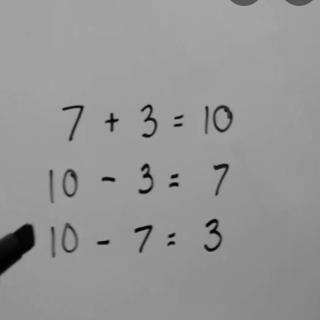 7 + 3 = 10
10 - 3 = 7
10 - 7 = 3